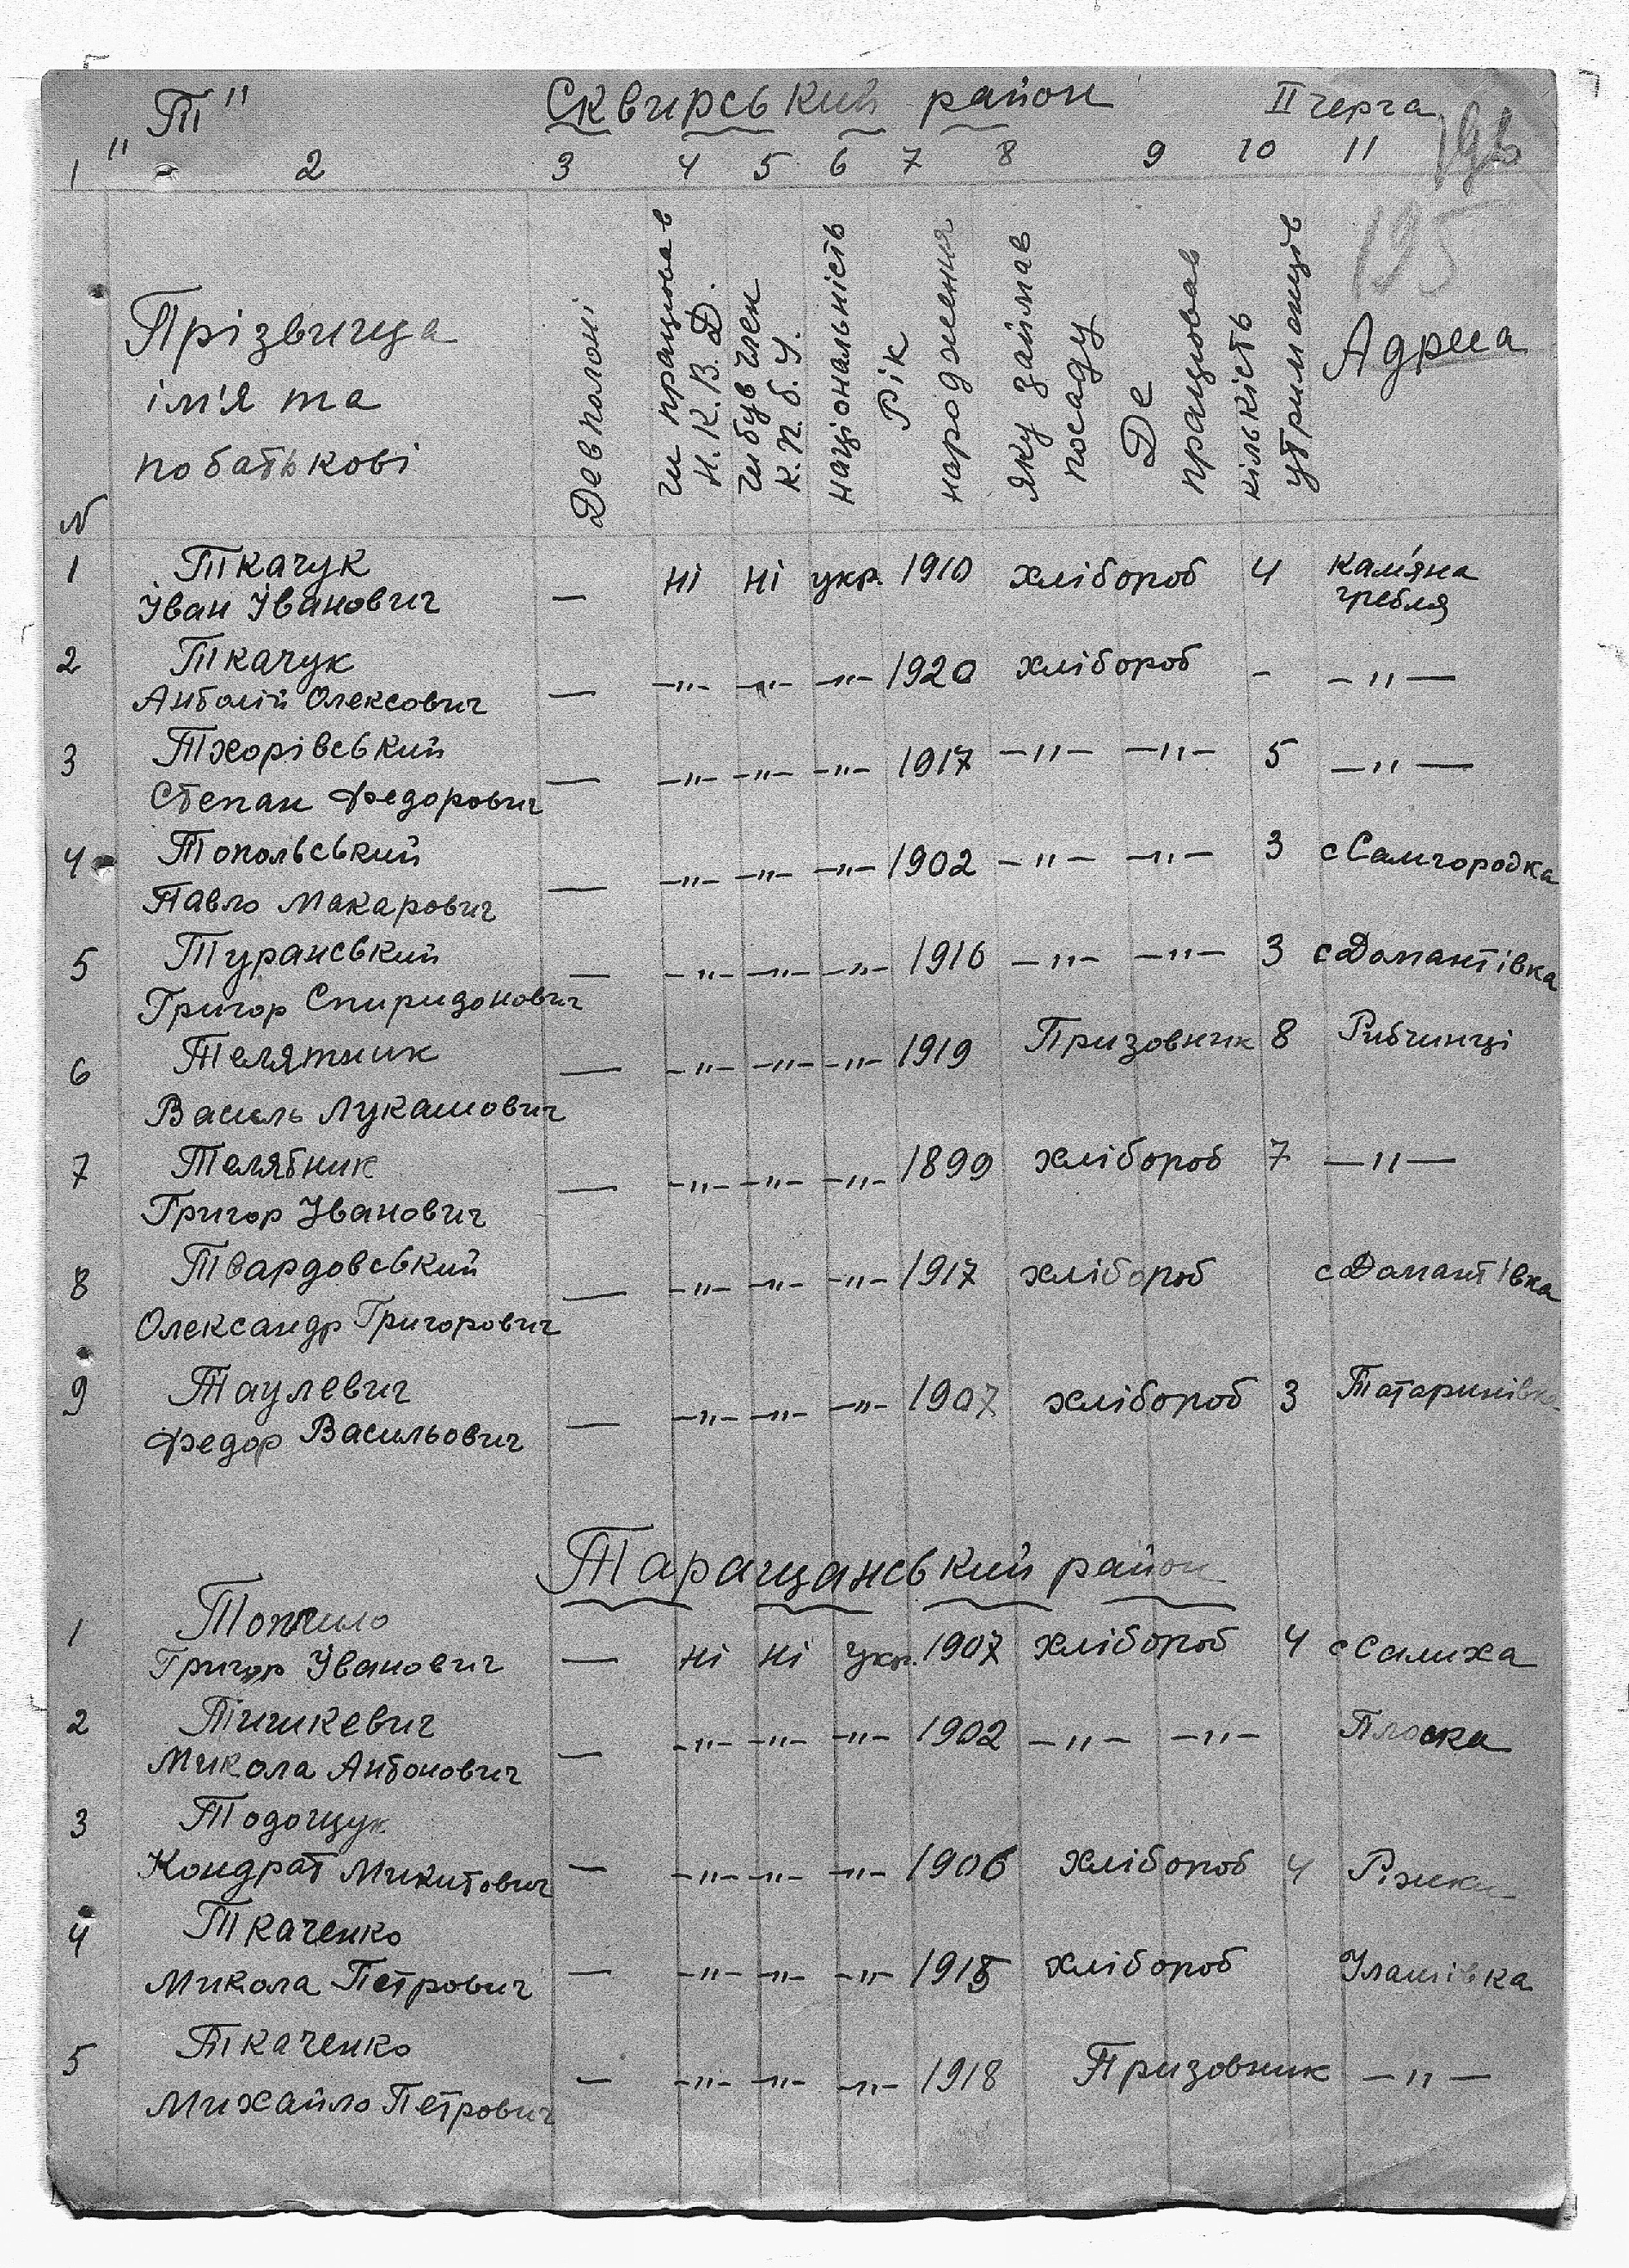 „Т" Сквирський район ІІ черга
196
1 2 3 4 5 6 7 8 9 10 11
195
N Прізвища
ім'я та
по батькові
Де в полоні
чи працював
Н.К.В.Д.
чи був член
К.П.б.У.
національність
Рік
народження
яку займав
посаду
Де
працював
кількість
утриманців
Адреса
1 Ткачук
Іван Іванович — ні ні укр. 1910 хлібороб 4 Кам'яна
гребля
2 Ткачук
Антолій Олексович — —"— —"— —"— 1920 хлібороб - —"—
3 Тхорівський
Степан Федорович — —"— —"— —"— 1917 —"— —"— 5 —"—
4 Топольський
Павло Макарович — —"— —"— —"— 1902 —"— —"— 3 с Самгородка
5 Туранський
Григор Спиридонович — —"— —"— —"— 1916 —"— —"— 3 с Домантівка
6 Телятник
Василь Лукашович — —"— —"— —"— 1919 Призовник 8 Рибчинці
7 Телятник
Григор Іванович — —"— —"— —"— 1899 хлібороб 7 —"—
8 Твардовський
Олександр Григорович — —"— —"— —"— 1917 хлібороб с Домантівка
9 Таулевич
Федор Васильович — —"— —"— —"— 1907 хлібороб 3 Татаринівка
Таращанський район
1 Топчило
Григор Іванович — ні ні укр. 1907 хлібороб 4 с Салиха
2 Тишкевич
Микола Антонович — —"— —"— —"— 1902 —"— —"— Плоска
3 Тодощук
Кондрат Микитович — —"— —"— —"— 1906 хлібороб 4 Ріжки
4 Ткаченко
Микола Петрович — —"— —"— —"— 1915 хлібороб Улашівка
5 Ткаченко
Михайло Петрович — —"— —"— —"— 1918 Призовник —"—